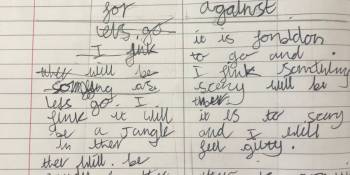 for
lets go
I fink
ther will be
somfing as
lets go. I
fink it will
be a Jungle
in ther
ther will. be
against.
it is forbddon
to go and.
I fink something
scary will be
ther.
it is to scary
and I will
feel gilty.